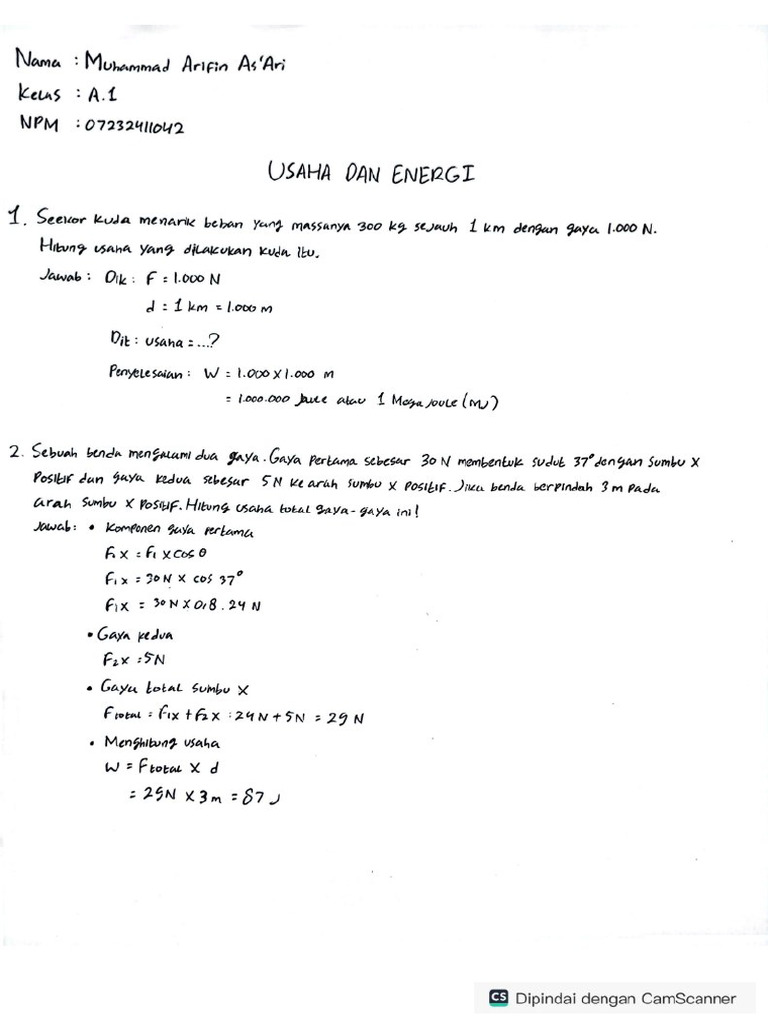 Nama : Muhammad Arifin As'Ari
Kelas : A.1
NPM : 07232411042
USAHA DAN ENERGI
1. Seekor kuda menarik beban yang massanya 300 kg sejauh 1 km dengan gaya 1.000 N.
Hitung usaha yang dilakukan kuda itu.
Jawab : Dik : F = 1.000 N
d = 1 km = 1.000 m
Dit : usaha = ...?
Penyelesaian : W = 1.000 x 1.000 m
= 1.000.000 Joule atau 1 Mega joule (MJ)
2. Sebuah benda mengalami dua gaya. Gaya Pertama sebesar 30 N membentuk sudut 37° dengan sumbu X
Positif dan gaya kedua sebesar 5 N ke arah sumbu X positif. Jika benda berpindah 3 m pada
arah sumbu X Positif. Hitung usaha total gaya-gaya ini!
Jawab : • Komponen gaya pertama
F1 X = F1 X cos θ
F1X = 30 N X cos 37°
F1X = 30 N X 0,8 . 24 N
• Gaya kedua
F2X = 5 N
• Gaya total sumbu X
Ftotal = F1X + F2X : 24 N + 5 N = 29 N
• Menghitung usaha
W = Ftotal X d
= 29 N X 3 m = 87 J
CS Dipindai dengan CamScanner